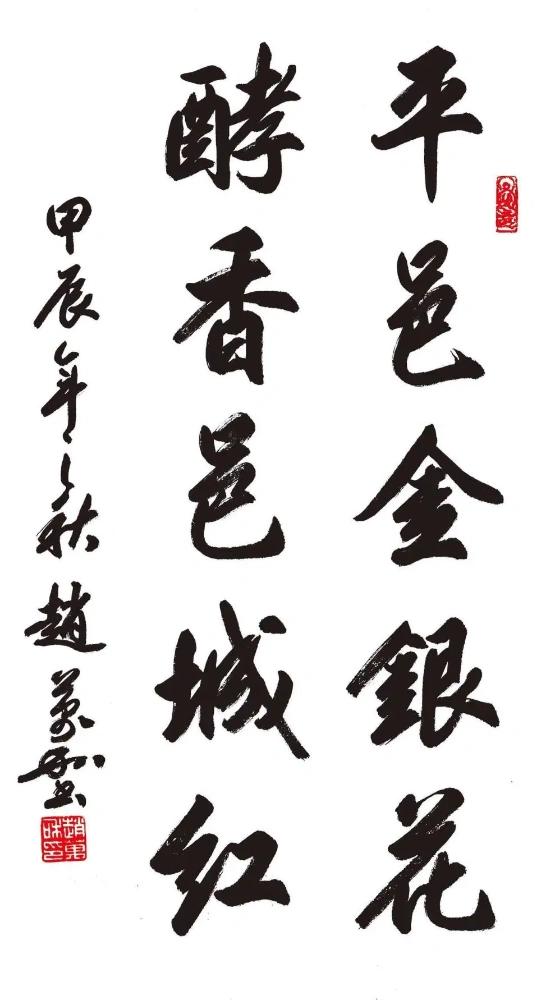 平邑金銀花
酵香邑城红
甲辰年之秋趙萬和書